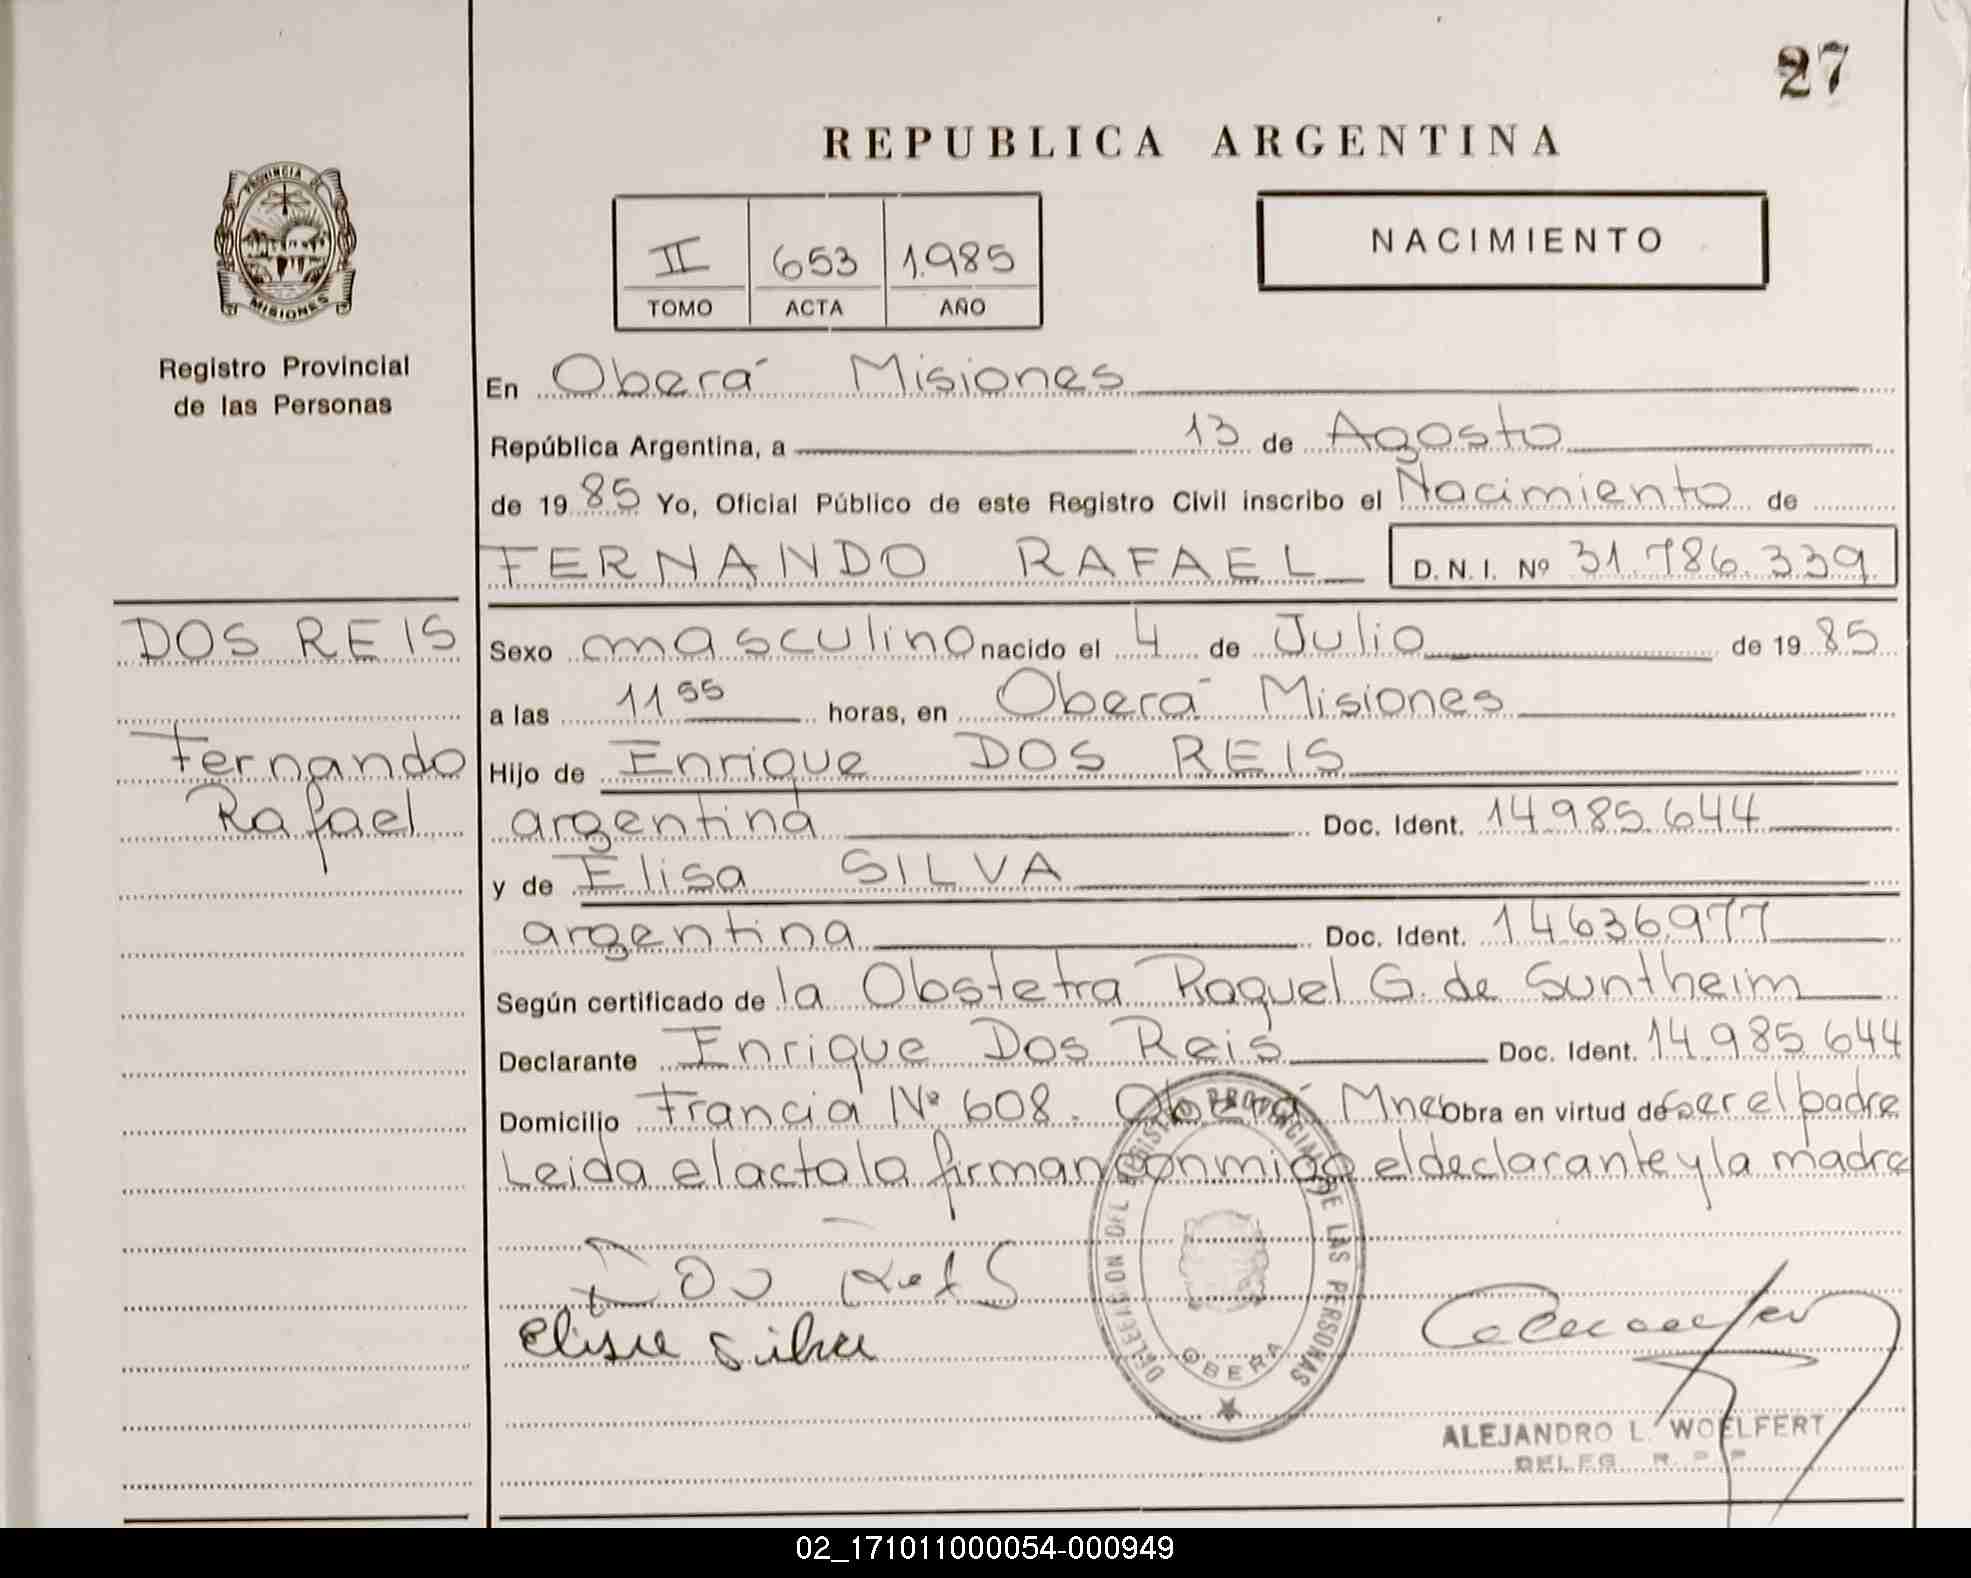 27
REPUBLICA ARGENTINA
PROVINCIA DE
MISIONES
Registro Provincial
de las Personas
II 653 1.985
TOMO ACTA AÑO
NACIMIENTO
En Oberá Misiones
República Argentina, a 13 de Agosto
de 19 85 Yo, Oficial Público de este Registro Civil inscribo el Nacimiento de
FERNANDO RAFAEL D.N.I. Nº 31.786.339
DOS REIS
Fernando
Rafael
Sexo masculino nacido el 4 de Julio de 19 85
a las 11 55 horas, en Oberá Misiones
Hijo de Enrique DOS REIS
argentina Doc. Ident. 14.985.644
y de Elisa SILVA
argentina Doc. Ident. 14.636.977
Según certificado de la Obstetra Raquel G. de Suntheim
Declarante Enrique Dos Reis Doc. Ident. 14.985.644
Domicilio Francia Nº 608. Oberá Mnes Obra en virtud de ser el padre
Leida el acta la firman conmigo el declarante y la madre
Dos Reis
Elisa Silva
DELEGACION DEL REGISTRO PROVINCIAL DE LAS PERSONAS
OBERA
ALEJANDRO L. WOELFERT
DELEG. R. P. P.
02_171011000054-000949